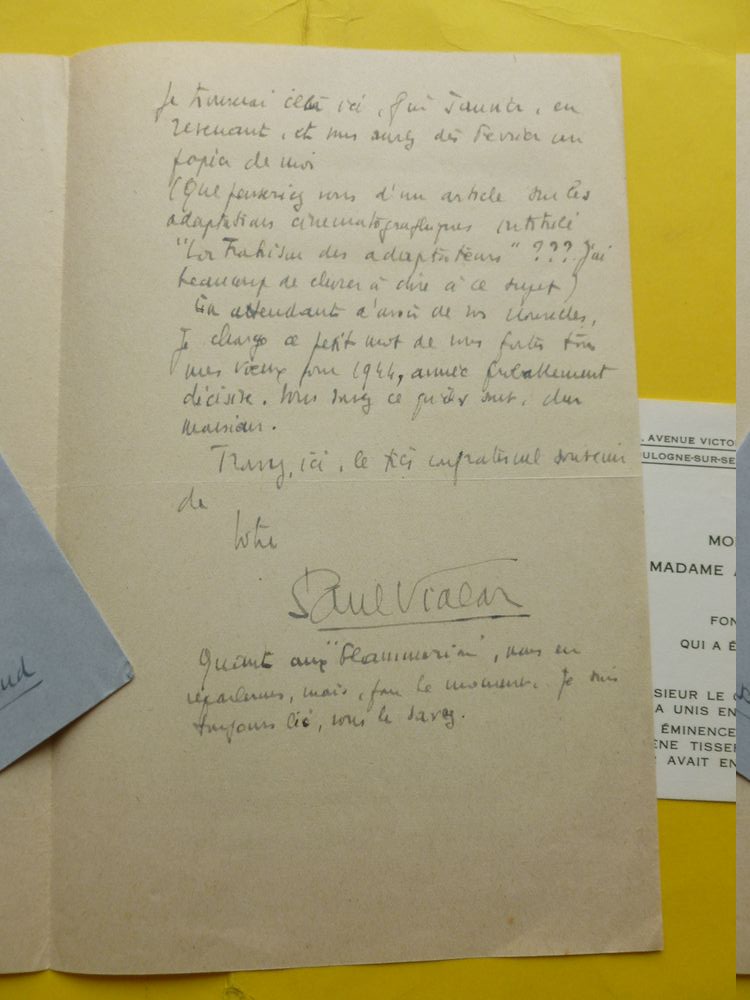 Je trouverai cela ici, fin Janvier, en
revenant, et vous aurez dès Février un
papier de moi
(Que penseriez vous d'un article sur les
adaptations cinématographiques intitulé
"La Trahison des adaptateurs" ??? J'ai
beaucoup de choses à dire à ce sujet)
En attendant d'avoir de vos nouvelles,
je charge ce petit mot de vous porter tous
mes vœux pour 1944, année probablement
décisive. Vous savez ce qu'ils sont, cher
monsieur.
Trouvez, ici, le très confraternel souvenir
de
Votre
Paul Vialar
Quant aux "Flammarion", nous en
reparlerons, mais, pour le moment, je suis
toujours lié, vous le savez.
AVENUE VICTO
ULOGNE-SUR-SE
MO
MADAME A
FON
QUI A É
SIEUR LE
A UNIS EN
ÉMINENCE
ÈNE TISSE
AVAIT EN